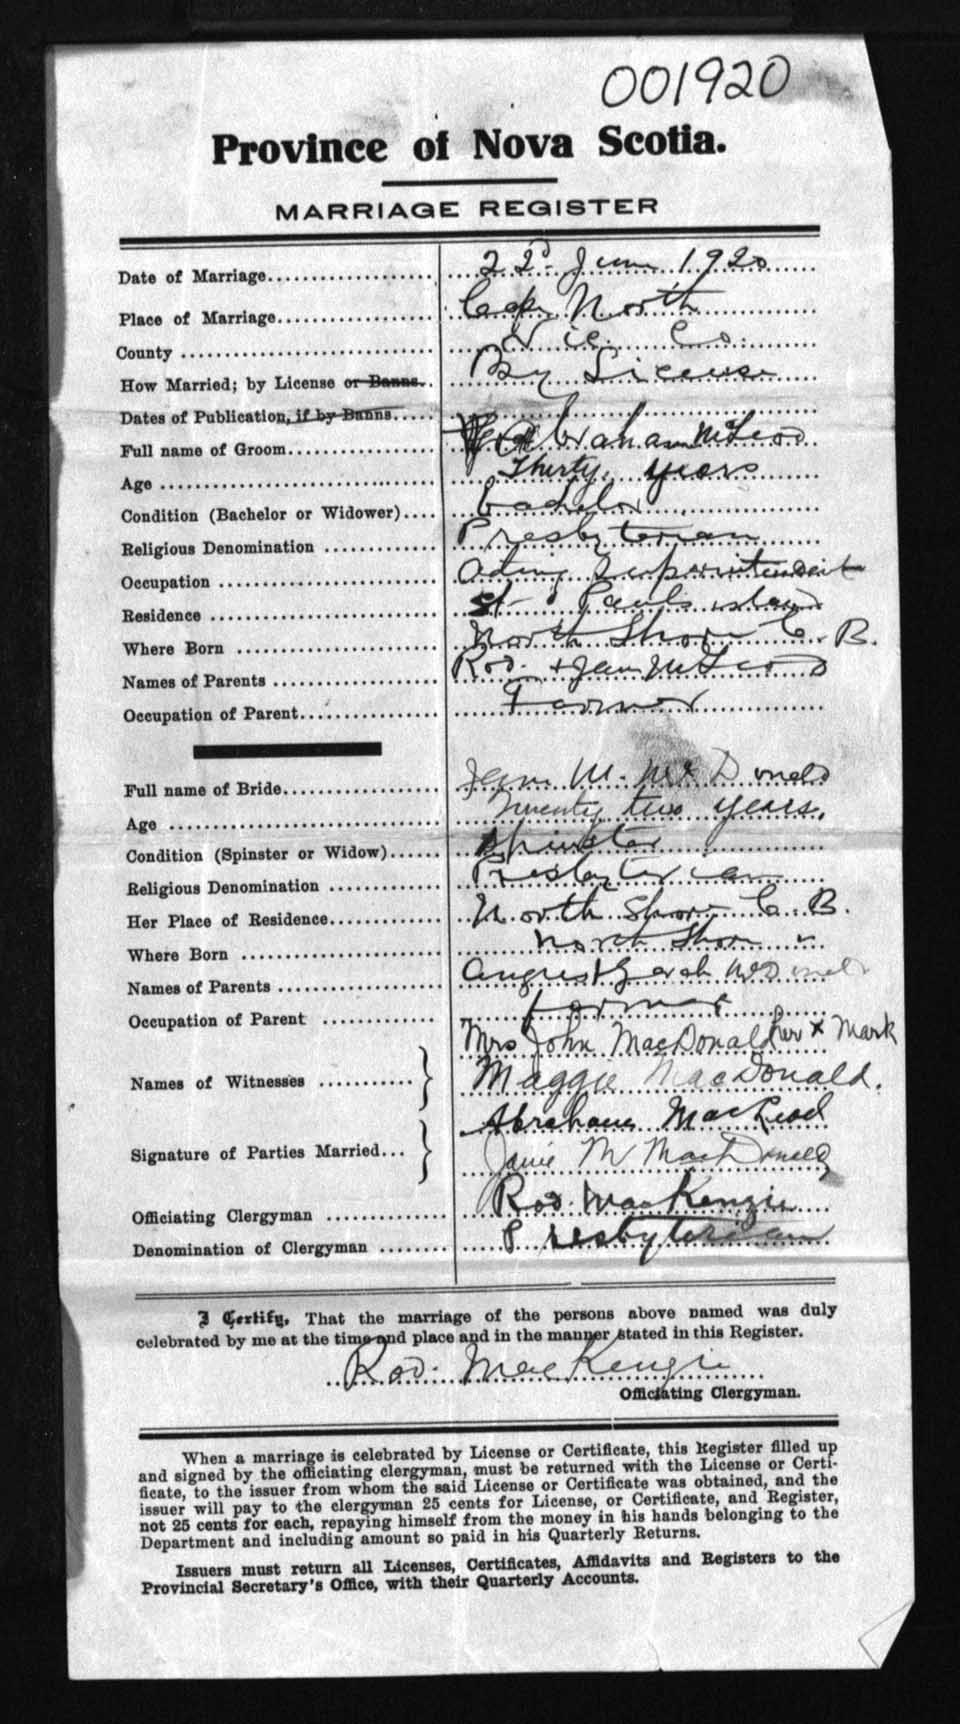 001920
Province of Nova Scotia.
MARRIAGE REGISTER
Date of Marriage 22d June 1920
Place of Marriage Cape North
County Vic. Co.
How Married; by License or Banns. By License
Dates of Publication, if by Banns
Full name of Groom Abraham McLeod
Age Thirty years
Condition (Bachelor or Widower) bachelor
Religious Denomination Presbyterian
Occupation Acting Superintendent
Residence St Pauls island
Where Born North Shore C. B.
Names of Parents Rod. + Jean McLeod
Occupation of Parent Farmer
Full name of Bride M. McDonald
Age Twenty two years.
Condition (Spinster or Widow) Spinster
Religious Denomination Presbyterian
Her Place of Residence North Shore C. B.
Where Born North Shore "
Names of Parents Angus + Sarah McDonald
Occupation of Parent farmer
Mrs John MacDonald her x Mark
Names of Witnesses Maggie MacDonald.
Abraham MacLeod
Signature of Parties Married... Janie M MacDonald
Officiating Clergyman Rod. MacKenzie
Denomination of Clergyman Presbyterian
I Certify, That the marriage of the persons above named was duly
celebrated by me at the time and place and in the manner stated in this Register.
Rod. MacKenzie
Officiating Clergyman.
When a marriage is celebrated by License or Certificate, this Register filled up
and signed by the officiating clergyman, must be returned with the License or Certi-
ficate, to the issuer from whom the said License or Certificate was obtained, and the
issuer will pay to the clergyman 25 cents for License, or Certificate, and Register,
not 25 cents for each, repaying himself from the money in his hands belonging to the
Department and including amount so paid in his Quarterly Returns.
Issuers must return all Licenses, Certificates, Affidavits and Registers to the
Provincial Secretary's Office, with their Quarterly Accounts.